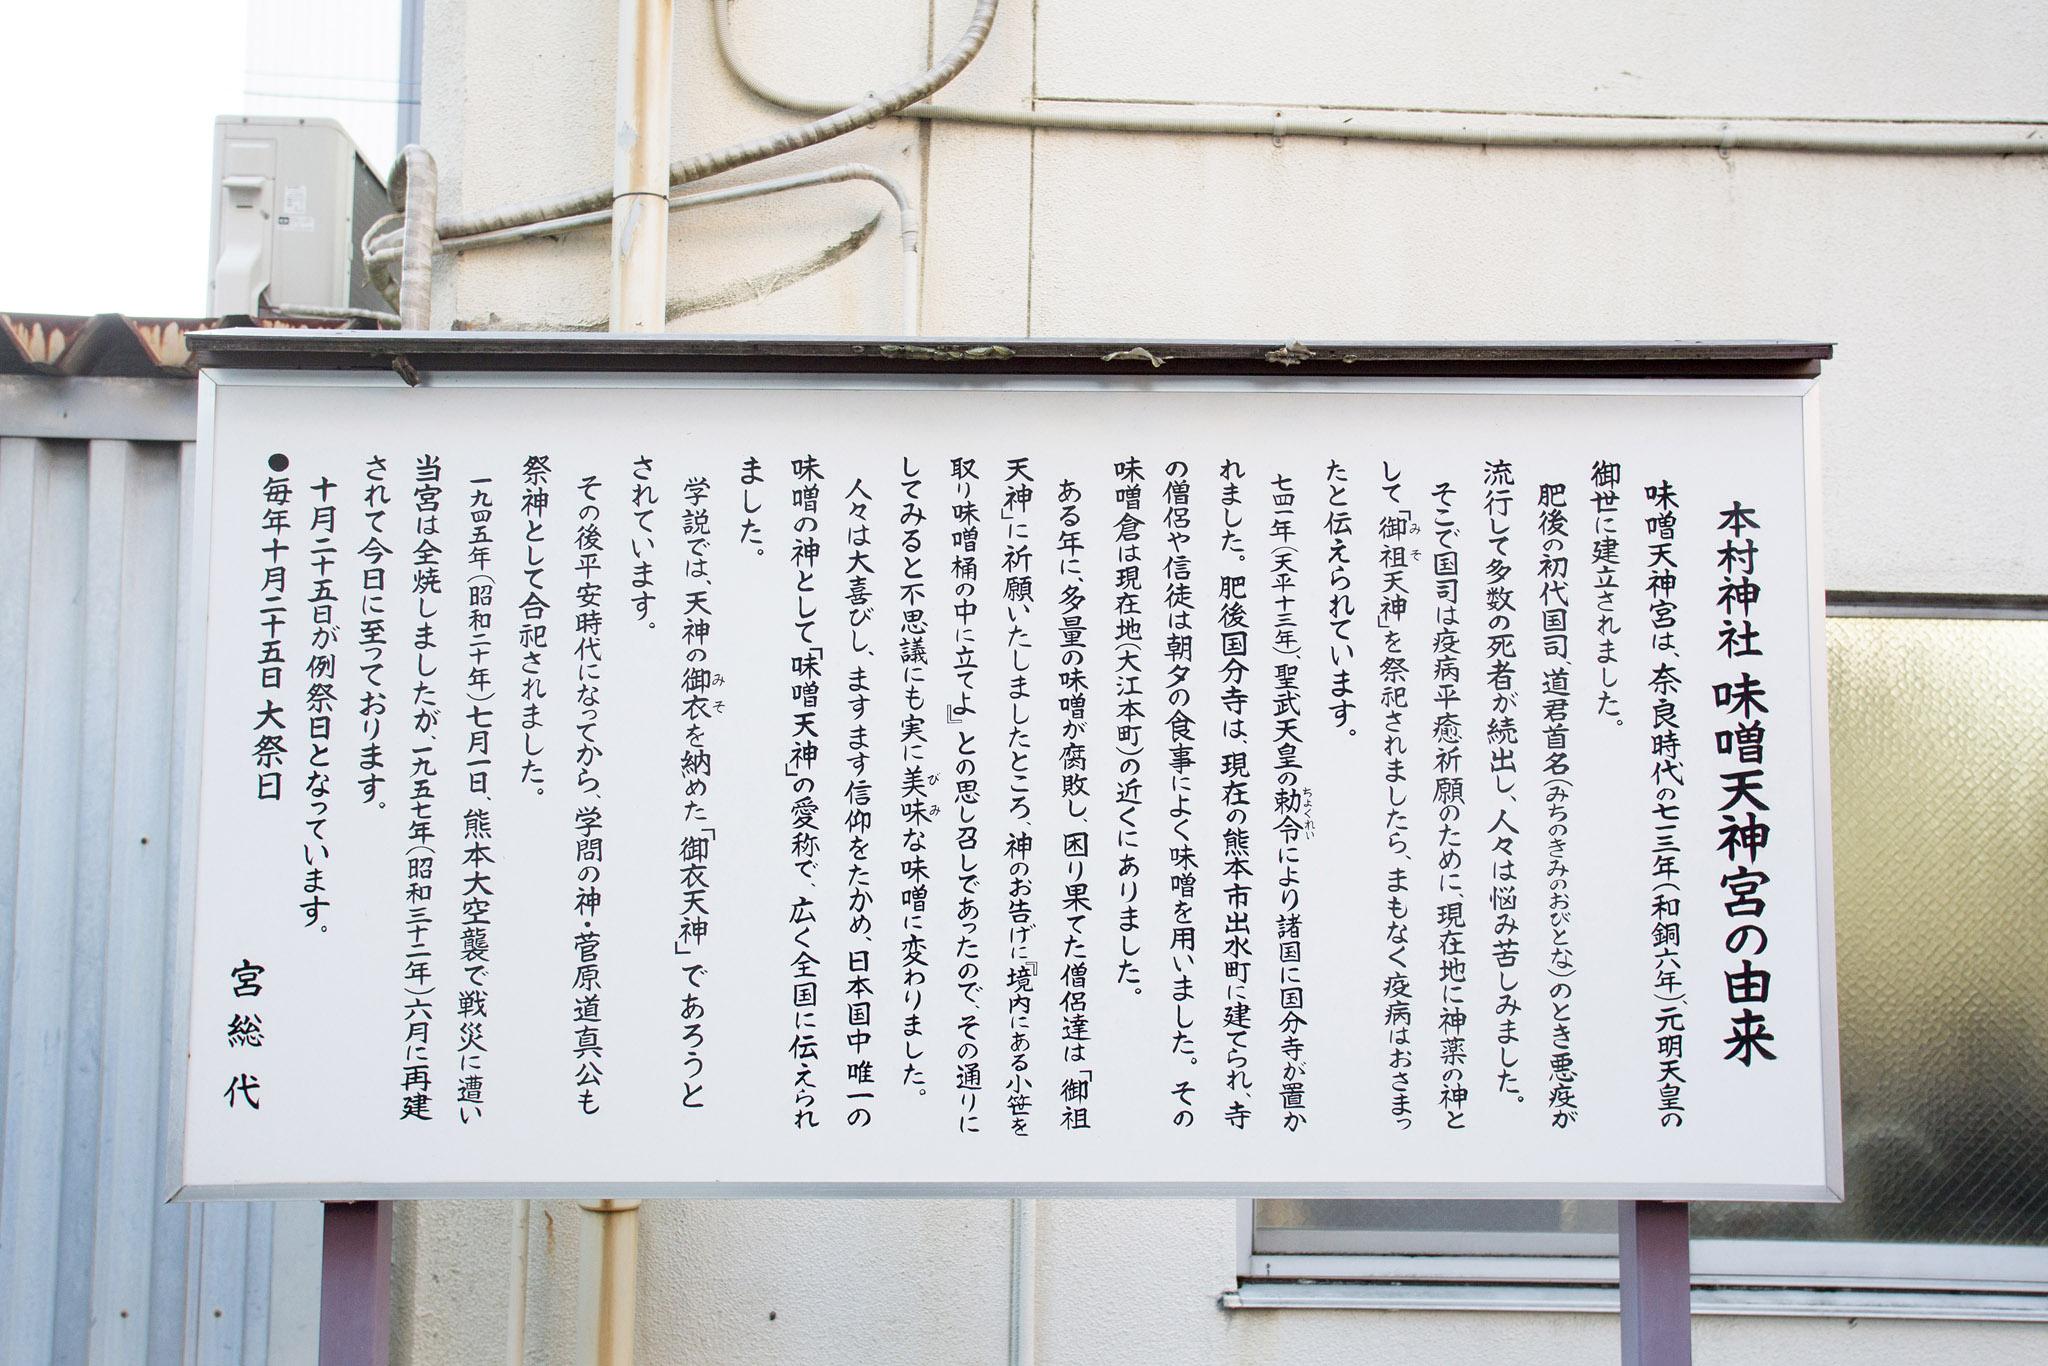 本村神社 味噌天神宮の由来
味噌天神宮は、奈良時代の七一三年(和銅六年)、元明天皇の
御世に建立されました。
肥後の初代国司、道君首名(みちのきみのおびとな)のとき悪疫が
流行して多数の死者が続出し、人々は悩み苦しみました。
そこで国司は疫病平癒祈願のために、現在地に神薬の神と
して「御祖天神」を祭祀されましたら、まもなく疫病はおさまっ
たと伝えられています。
七四一年(天平十三年)、聖武天皇の勅令により諸国に国分寺が置か
れました。肥後国分寺は、現在の熊本市出水町に建てられ、寺
の僧侶や信徒は朝夕の食事によく味噌を用いました。その
味噌倉は現在地(大江本町)の近くにありました。
ある年に、多量の味噌が腐敗し、困り果てた僧侶達は「御祖
天神」に祈願いたしましたところ、神のお告げに『境内にある小笹を
取り味噌桶の中に立てよ』との思し召しであったので、その通りに
してみると不思議にも実に美味な味噌に変わりました。
人々は大喜びし、ますます信仰をたかめ、日本国中唯一の
味噌の神として「味噌天神」の愛称で、広く全国に伝えられ
ました。
学説では、天神の御衣を納めた「御衣天神」であろうと
されています。
その後平安時代になってから、学問の神・菅原道真公も
祭神として合祀されました。
一九四五年(昭和二十年)七月一日、熊本大空襲で戦災に遭い
当宮は全焼しましたが、一九五七年(昭和三十二年)六月に再建
されて今日に至っております。
十月二十五日が例祭日となっています。
●毎年十月二十五日 大祭日
宮総代